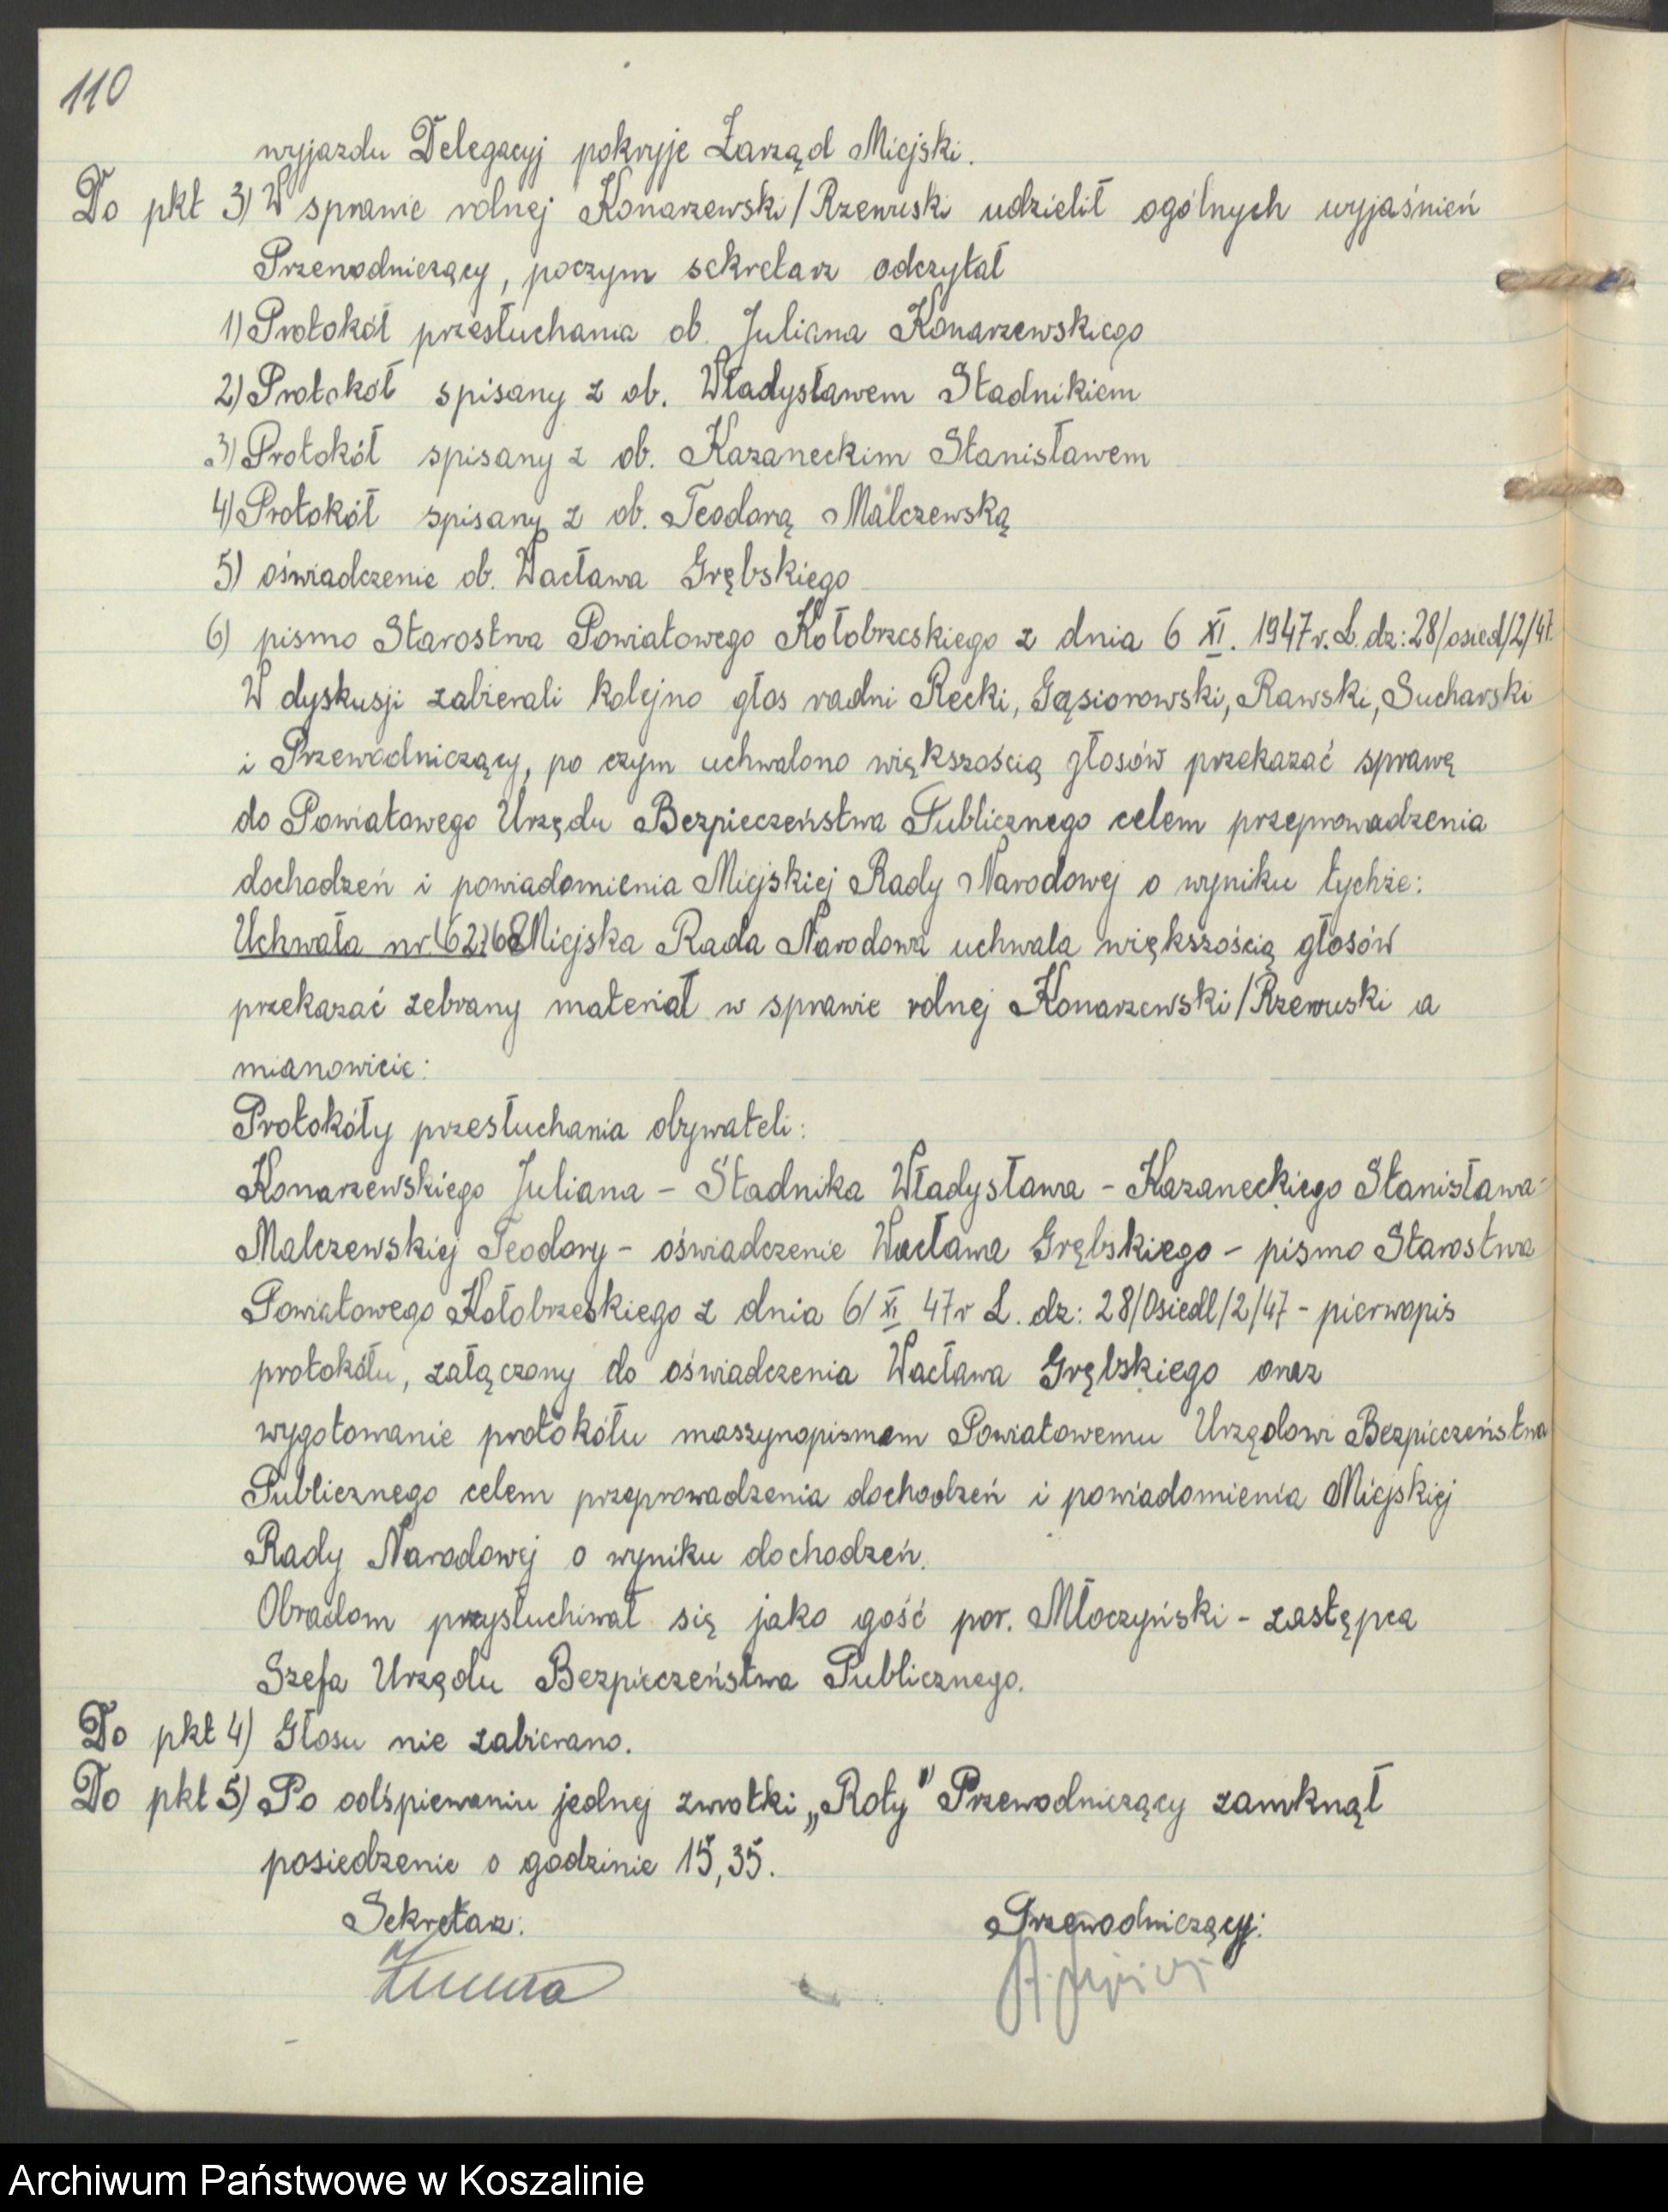 110
wyjazdu Delegacyj pokryje Zarząd Miejski.
Do pkt 3) W sprawie rolnej Konarzewski/Rzewuski udzielił ogólnych wyjaśnień
Przewodniczący, poczym sekretarz odczytał
1) Protokół przesłuchania ob. Juliana Konarzewskiego
2) Protokół spisany z ob. Władysławem Stadnikiem
3) Protokół spisany z ob. Kazaneckim Stanisławem
4) Protokół spisany z ob. Teodorą Malczewską
5) oświadczenie ob. Wacława Grębskiego
6) pismo Starostwa Powiatowego Kołobrzeskiego z dnia 6 XI. 1947 r. L. dz: 28/osied/2/47.
W dyskusji zabierali kolejno głos radni Recki, Gąsiorowski, Rawski, Sucharski
i Przewodniczący, po czym uchwalono większością głosów przekazać sprawę
do Powiatowego Urzędu Bezpieczeństwa Publicznego celem przeprowadzenia
dochodzeń i powiadomienia Miejskiej Rady Narodowej o wyniku tychże:
Uchwała nr. (62) 68 Miejska Rada Narodowa uchwala większością głosów
przekazać zebrany materiał w sprawie rolnej Konarzewski/Rzewuski a
mianowicie:
Protokóły przesłuchania obywateli:
Konarzewskiego Juliana - Stadnika Władysława - Kazaneckiego Stanisława -
Malczewskiej Teodory - oświadczenie Wacława Grębskiego - pismo Starostwa
Powiatowego Kołobrzeskiego z dnia 6/XI 47 r L. dz: 28/Osiedl/2/47 - pierwopis
protokółu, załączony do oświadczenia Wacława Grębskiego oraz
wygotowanie protokółu maszynopismem Powiatowemu Urzędowi Bezpieczeństwa
Publicznego celem przeprowadzenia dochodzeń i powiadomienia Miejskiej
Rady Narodowej o wyniku dochodzeń.
Obradom przysłuchiwał się jako gość por. Młoczyński - zastępca
Szefa Urzędu Bezpieczeństwa Publicznego.
Do pkt 4) Głosu nie zabierano.
Do pkt 5) Po odśpiewaniu jednej zwrotki „Roty" Przewodniczący zamknął
posiedzenie o godzinie 15,35.
Sekretarz: Przewodniczący:
Archiwum Państwowe w Koszalinie